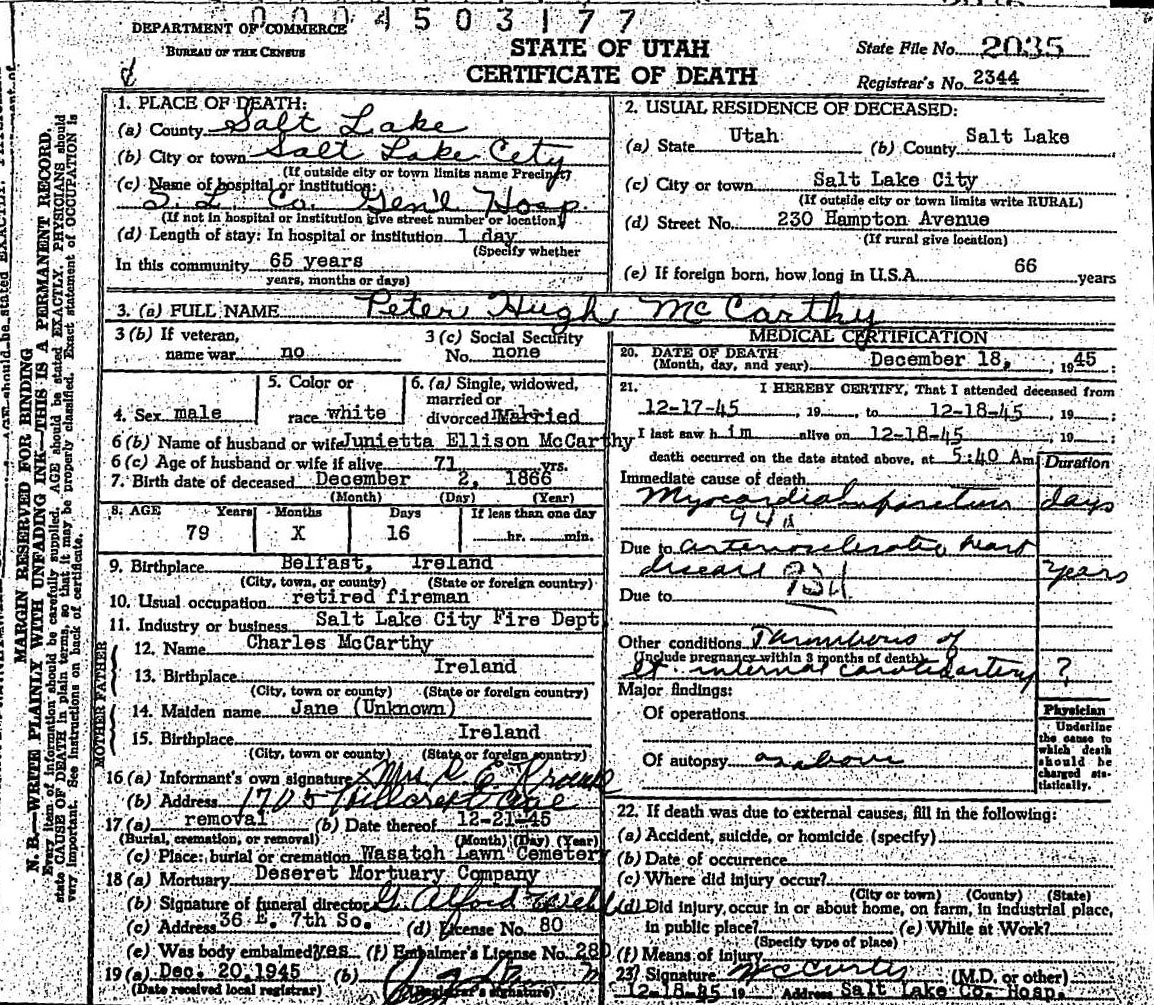 0004503177
DEPARTMENT OF COMMERCE
BUREAU OF THE CENSUS
STATE OF UTAH
CERTIFICATE OF DEATH
State File No. 2035
Registrar's No. 2344
MARGIN RESERVED FOR BINDING
N. B.—WRITE PLAINLY WITH UNFADING INK—THIS IS A PERMANENT RECORD.
Every item of information should be carefully supplied. AGE should be stated EXACTLY. PHYSICIANS should
state CAUSE OF DEATH in plain terms, so that it may be properly classified. Exact statement of OCCUPATION is
very important. See instructions on back of certificate.
1. PLACE OF DEATH:
(a) County Salt Lake
(b) City or town Salt Lake City
(If outside city or town limits name Precinct)
(c) Name of hospital or institution:
S. L. Co. Gen'l Hosp.
(If not in hospital or institution give street number or location)
(d) Length of stay: In hospital or institution 1 day
(Specify whether
In this community 65 years
years, months or days)
2. USUAL RESIDENCE OF DECEASED:
(a) State Utah (b) County Salt Lake
(c) City or town Salt Lake City
(If outside city or town limits write RURAL)
(d) Street No. 230 Hampton Avenue
(If rural give location)
(e) If foreign born, how long in U.S.A. 66 years
3. (a) FULL NAME Peter Hugh McCarthy
3 (b) If veteran,
name war no
3 (c) Social Security
No. none
4. Sex male
5. Color or
race white
6. (a) Single, widowed,
married or
divorced Married
6 (b) Name of husband or wife Junietta Ellison McCarthy
6 (c) Age of husband or wife if alive 71 yrs.
7. Birth date of deceased December 2, 1866
(Month) (Day) (Year)
8. AGE Years Months Days If less than one day
79 X 16 hr. min.
9. Birthplace Belfast, Ireland
(City, town, or county) (State or foreign country)
10. Usual occupation retired fireman
11. Industry or business Salt Lake City Fire Dept
FATHER
12. Name Charles McCarthy
13. Birthplace Ireland
(City, town or county) (State or foreign country)
MOTHER
14. Maiden name Jane (Unknown)
15. Birthplace Ireland
(City, town or county) (State or foreign country)
16 (a) Informant's own signature Mrs
(b) Address 1705 Hillcrest Ave
17 (a) removal (b) Date thereof 12-21-45
(Burial, cremation, or removal) (Month) (Day) (Year)
(c) Place: burial or cremation Wasatch Lawn Cemetery
18 (a) Mortuary Deseret Mortuary Company
(b) Signature of funeral director
(c) Address 36 E. 7th So. (d) License No. 80
(e) Was body embalmed yes (f) Embalmer's License No. 280
19 (a) Dec. 20, 1945 (b)
(Date received local registrar) (Registrar's signature)
MEDICAL CERTIFICATION
20. DATE OF DEATH
(Month, day, and year) December 18, 1945
21. I HEREBY CERTIFY, That I attended deceased from
12-17-45, 19, to 12-18-45, 19;
I last saw him alive on 12-18-45, 19;
death occurred on the date stated above, at 5:40 Am
Duration
Immediate cause of death
Myocardial infarction days
94a
Due to arteriosclerotic heart
disease years
Due to
Other conditions Thrombosis of
(Include pregnancy within 3 months of death)
internal carotid artery ?
Major findings:
Of operations
Of autopsy as above
Physician
Underline
the cause to
which death
should be
charged sta-
tistically.
22. If death was due to external causes, fill in the following:
(a) Accident, suicide, or homicide (specify)
(b) Date of occurrence
(c) Where did injury occur?
(City or town) (County) (State)
(d) Did injury occur in or about home, on farm, in industrial place,
in public place? (e) While at Work?
(Specify type of place)
(f) Means of injury
23 Signature (M.D. or other)
12-18-45 19 Address Salt Lake Co. Hosp.